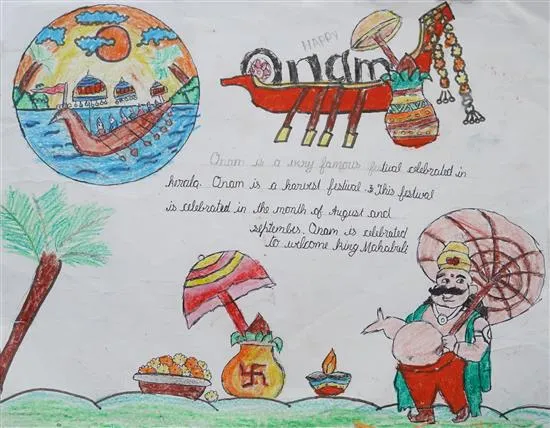 HAPPY
Onam
Onam is a very famous festival celebrated in
kerala. Onam is a harvest festival. This festival
is celebrated in the month of August and
september. Onam is celebrated
to welcome king Mahabali